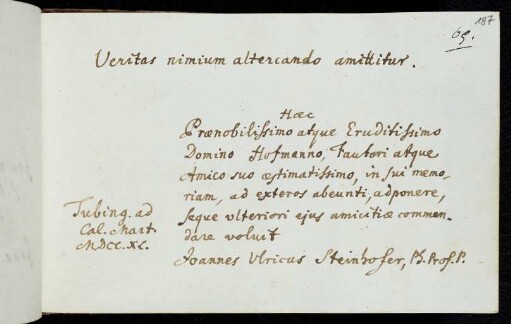 187
69.
Veritas nimium altercando amittitur.
Hæc
Prænobilissimo atque Eruditissimo
Domino Hofmanno, Fautori atque
Amico suo æstimatissimo, in sui memo-
riam, ad exteros abeunti, adponere,
seque ulteriori ejus amicitiæ commen-
dare voluit
Joannes Ulricus Steinhofer, Ph. Prof. P.
Tubing. ad
Cal. Mart.
MDCC.XL.